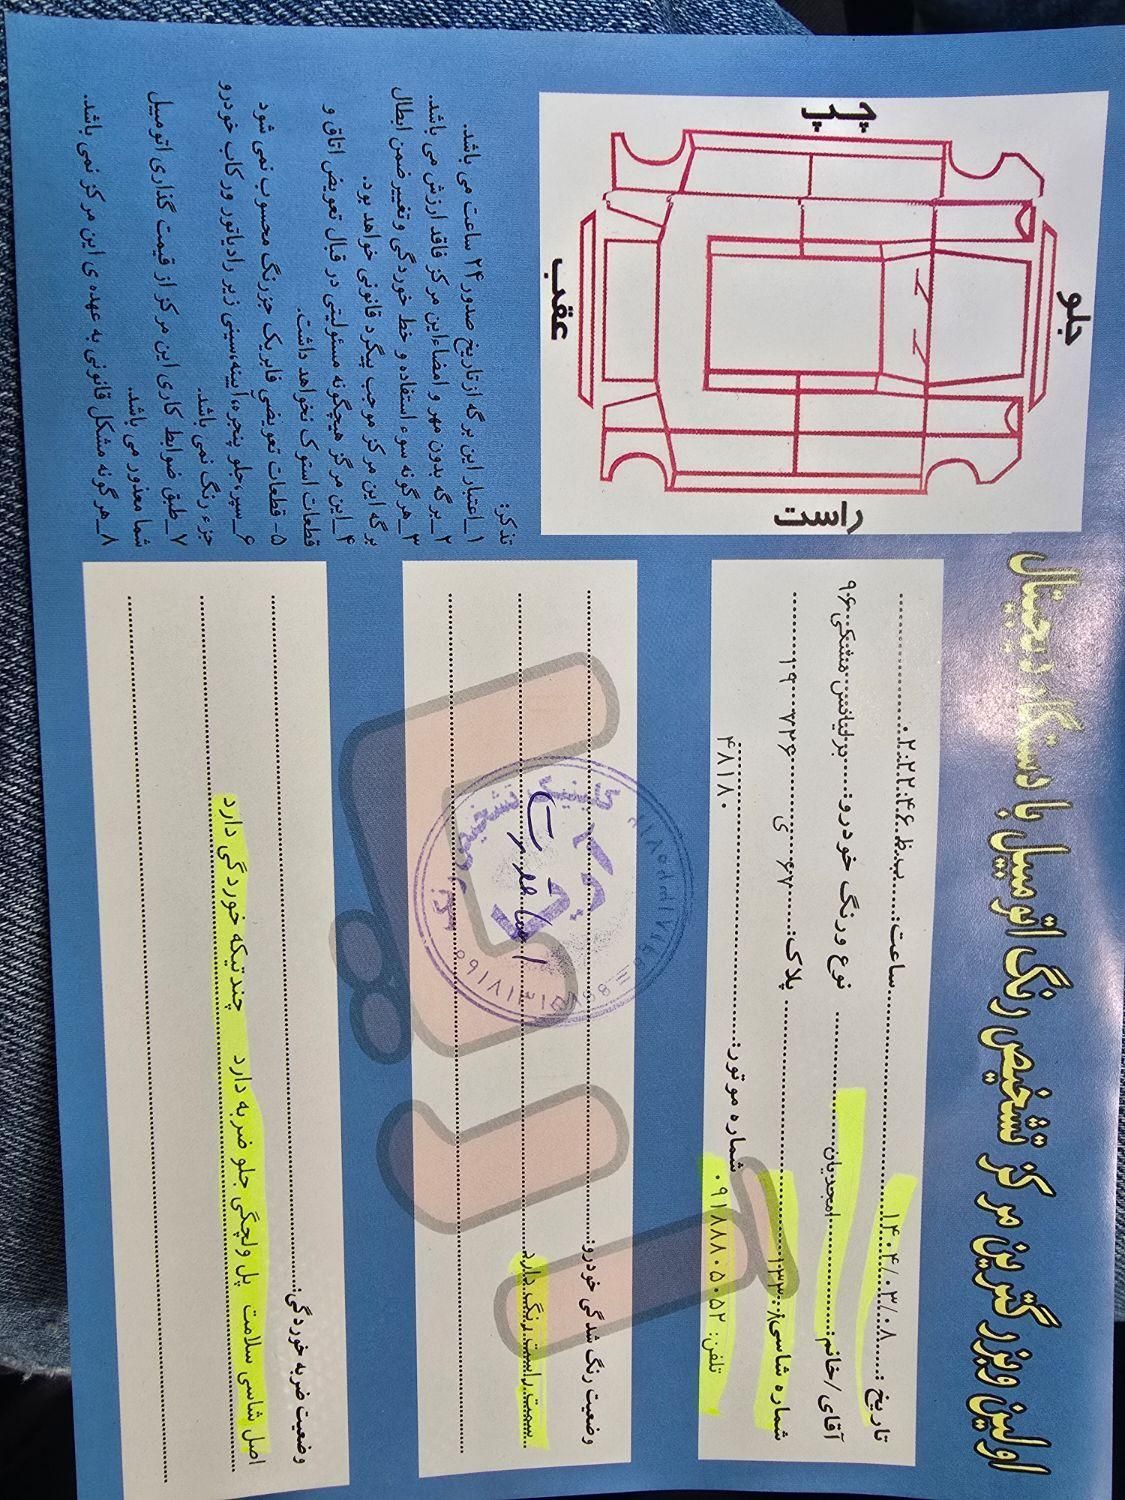 اولین وبزرگترین مرکز تشخیص رنگ اتومبیل با دستگاه دیجیتال
تاریخ: ۱۴۰۴/۰۳/۰۸ ساعت: ۰۲:۲۲:۴۶ ب.ظ
آقای/خانم: امجدیان نوع ورنگ خودرو: برلیانس مشکی ۹۶
شماره شاسی: ۱۳۳۰۸ پلاک: ۶۷ ی ۷۲۶ ۱۹
تلفن: ۰۹۱۸۸۸۰۵۰۵۲ شماره موتور: ۴۸۱۸۰
وضعیت رنگ شدگی خودرو:
سمت راست رنگ دارد
وضعیت ضربه خوردگی:
اصل شاسی سلامت پل ولچگی جلو ضربه دارد چند تیکه خوردگی دارد
جلو
چپ
راست
عقب
تذکر:
۱_اعتبار این برگه از تاریخ صدور ۲۴ ساعت می باشد.
۲_برگه بدون مهر و امضاء این مرکز فاقد ارزش می باشد.
۳_هرگونه سوء استفاده و خط خوردگی و تغییر ضمن ابطال
برگه این مرکز موجب پیگرد قانونی خواهد بود.
۴_این مرکز هیچگونه مسئولیتی در قبال تعویض اتاق و
قطعات استوک نخواهد داشت.
۵- قطعات تعویضی فابریک جزرنگ محسوب نمی شود
۶_سپر،جلو پنجره،آیینه،سینی زیر رادیاتور ور کاب خودرو
جزء رنگ نمی باشد.
۷_طبق ضوابط کاری این مرکز از قیمت گذاری اتومبیل
شما معذور می باشد.
۸_هرگونه مشکل قانونی به عهده ی این مرکز نمی باشد.
کلینیک تشخیص رنگ